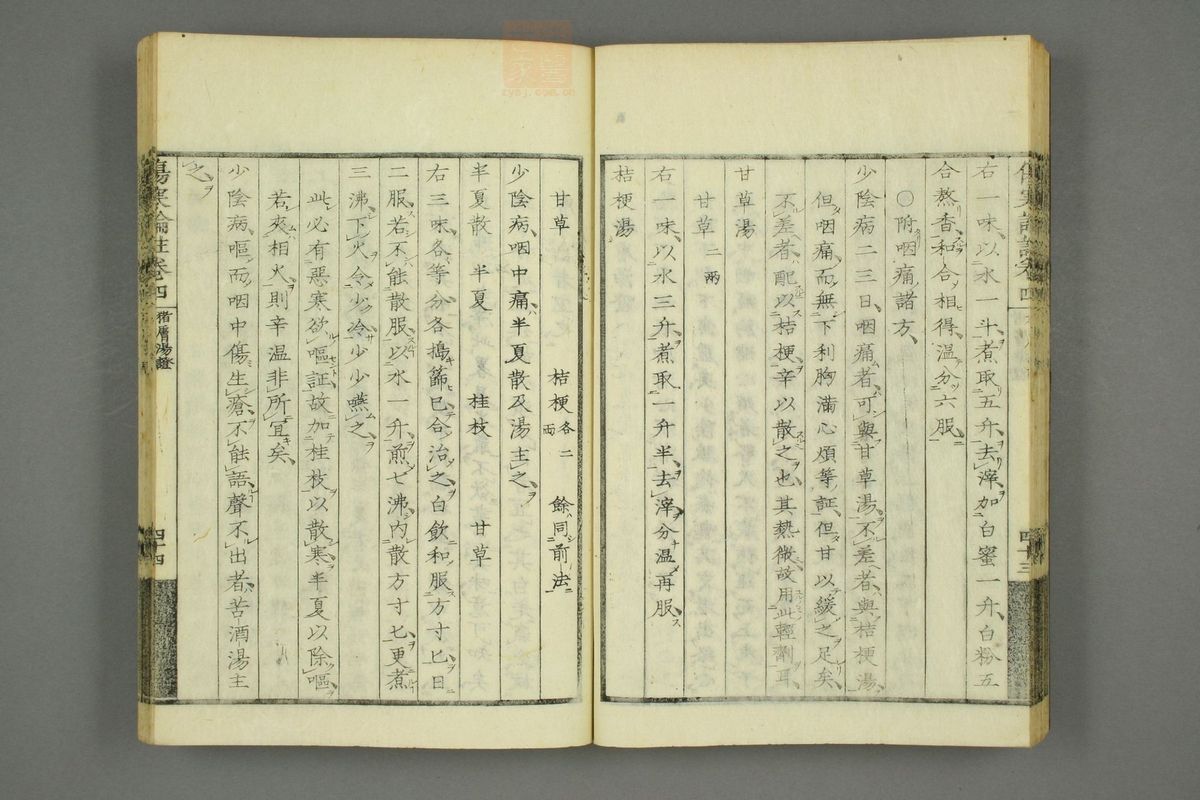 右一味以水一斗煮取五升去滓加白蜜一升白粉五
合熬香和合相得溫分六服
○附咽痛諸方
少陰病二三日咽痛者可與甘草湯不差者與桔梗湯
但咽痛而無下利胸滿心煩等証但甘以緩之足矣
不差者配以桔梗辛以散之也其熱微故用此輕劑耳
甘草湯
甘草二兩
右一味以水三升煮取一升半去滓分溫再服
桔梗湯
四十三
甘草 桔梗各二兩 餘同前法
少陰病咽中痛半夏散及湯主之
半夏散 半夏 桂枝 甘草
右三味各等分各搗篩已合治之白飲和服方寸匕日
二服若不能散服以水一升煎七沸內散方寸匕更煮
三沸下火令少冷少少嚥之
此必有惡寒欲嘔証故加桂枝以散寒半夏以除嘔
若夾相火則辛溫非所宜矣
少陰病嘔而咽中傷生瘡不能語聲不出者苦酒湯主
之
傷寒論註卷四 豬膚湯證 四十四
zysj.com.cn